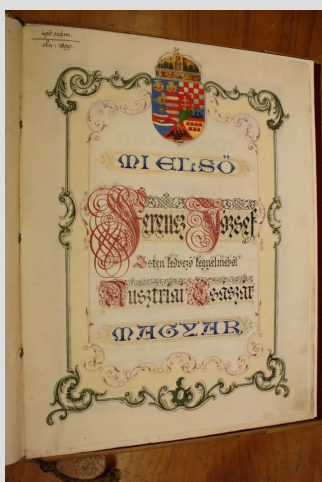 496 szám.
eln. - 1899.
MI ELSŐ
Ferencz József
Isten kedvező kegyelméből
Ausztriai Császár
MAGYAR